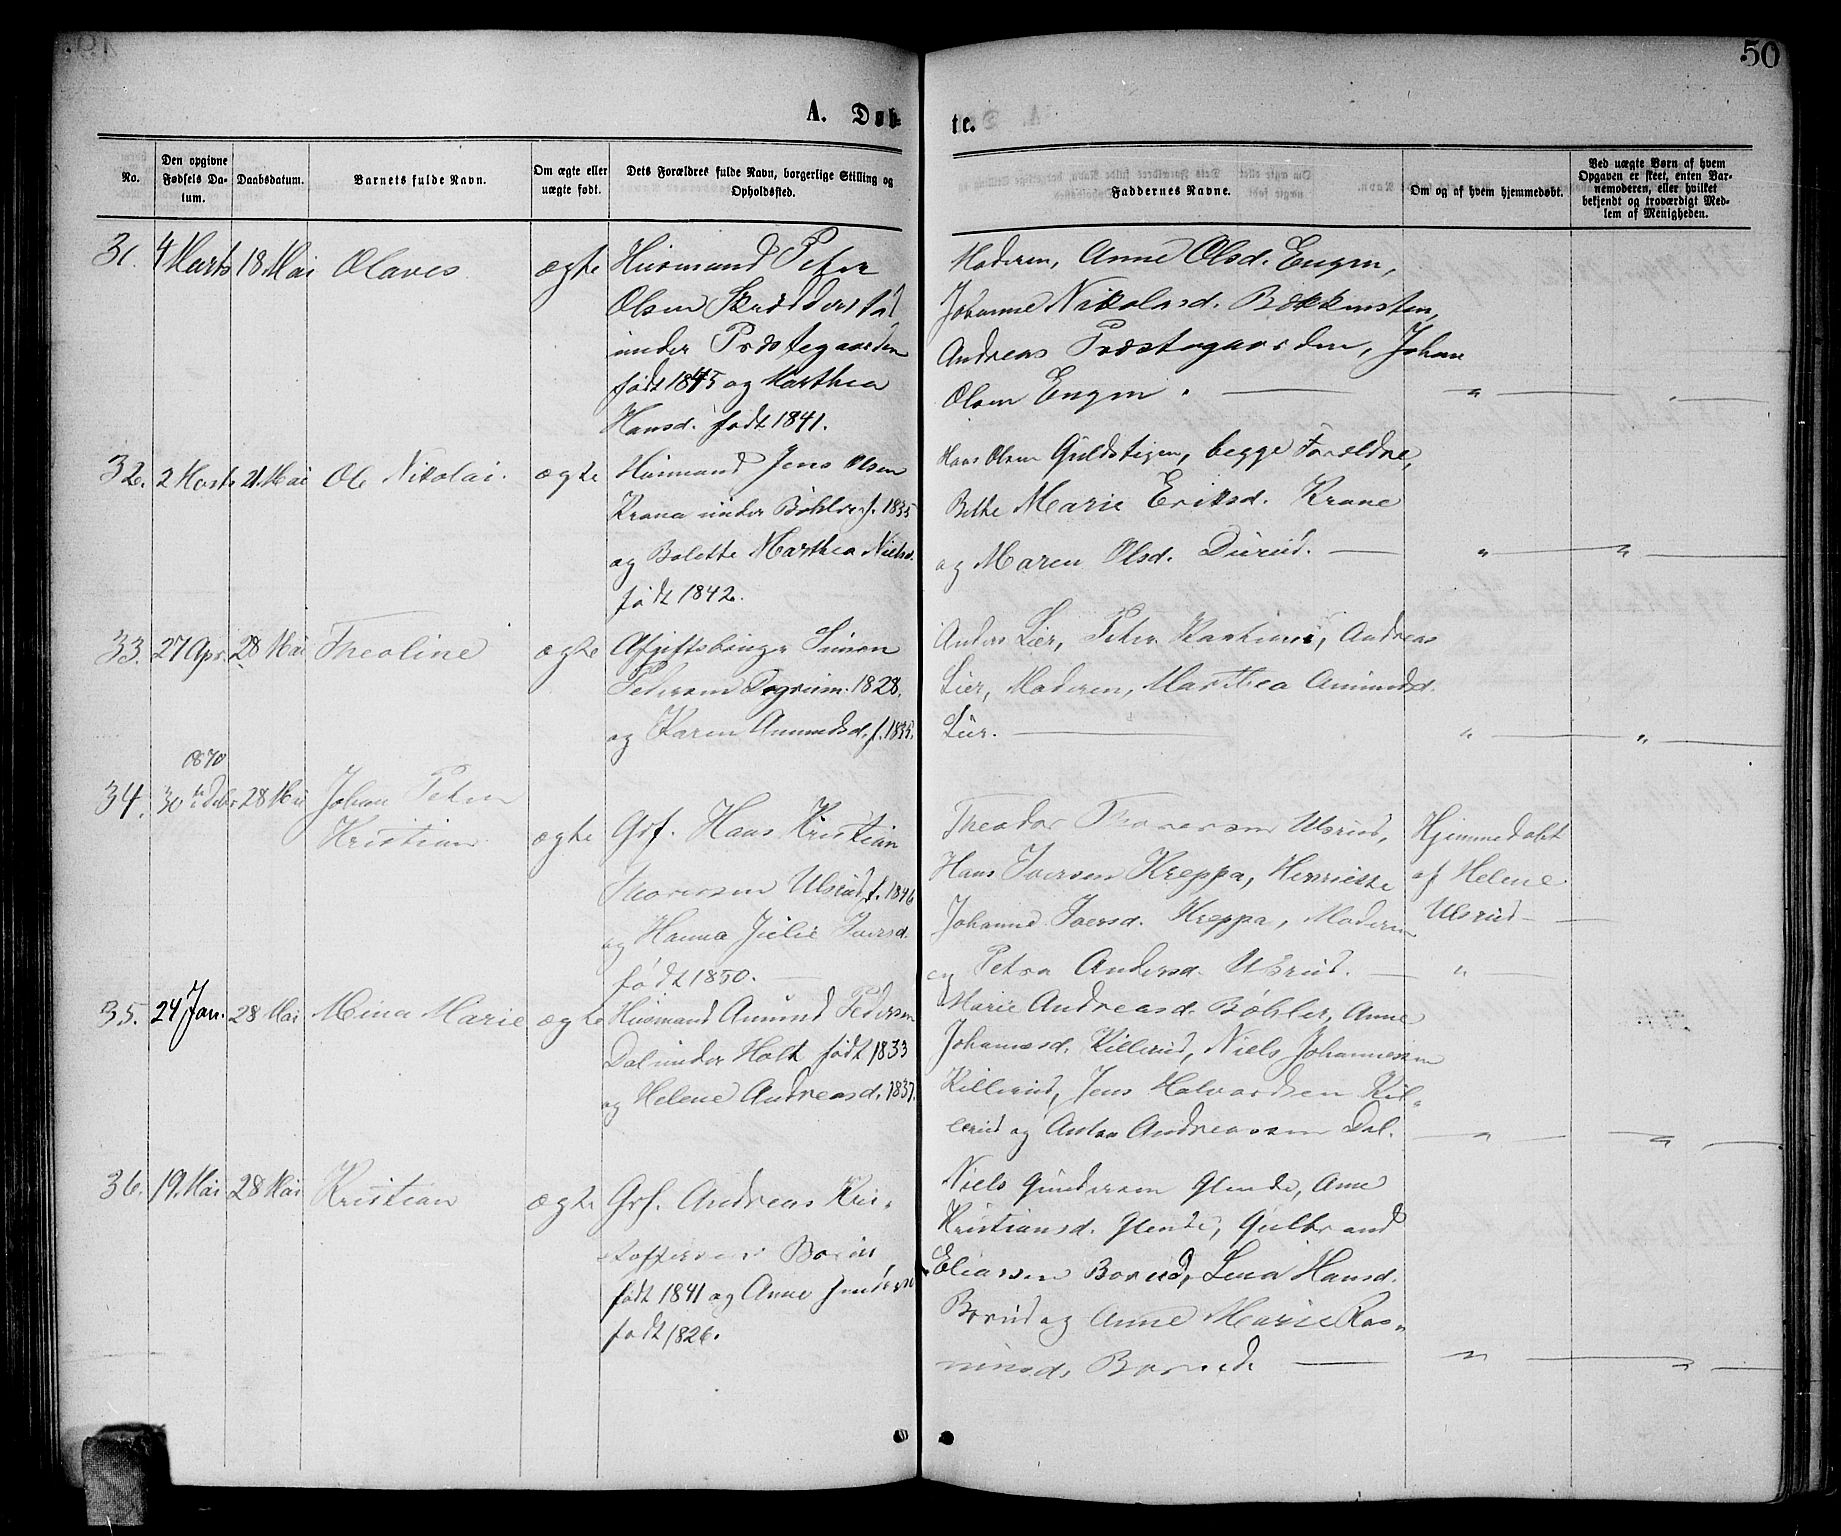 50
A. Døb-
te.
No.
Den opgivne Fødsels Da-tum.
Daabsdatum.
Barnets fulde Navn.
Om ægte eller uægte født.
Dets Forældres fulde Navn, borgerlige Stilling og Opholdssted.
Faddernes Navne.
Om og af hvem hjemmedøbt.
Ved uægte Børn af hvem Opgaven er skeet, enten Bar-nemoderen, eller hvilket bekjendt og troværdigt Med-lem af Menigheden.
31. 4 Marts 18 Mai Olaves ægte Husmand Peter
Olsen
under Præstegaarden
født 1845 og Marthea
Hansd. født 1841.
Moderen, Anne Olsd. Engen,
Johanne Nikolasd. Bækkensten,
Andreas Præstegaarden, Johan
Olsen Engen. — „ — „ —
32. 2 Marts 21 Mai Ole Nikolai. ægte Husmand Jens Olsen
Krana under Bøhler f. 1835
og Bolette Marthea Nielsd.
født 1842.
Hans Olsen Guldstigen, begge Forældre,
Marie Eriksd. Krane
og Maren Olsd. Durud. — „ — „ —
33. 27 Apr. 28 Mai Theoline ægte Simen
Pedersen 1828.
og Karen Amundsd. f. 1835.
Anders Lier, Peter Andreas
Lier, Moderen, Marthea Amundsd.
Lier. — „ — „ —
1870
34. 30te Debr 28 Mai Johan Peter
Kristian ægte Grf. Hans Kristian
Thoresen Ulsrud f. 1846
og Hanna Julie Iversd.
født 1850. —
Theodor Thoresen Ulsrud,
Hans Iversen Kreppa, Henriette
Johanne Iversd. Kreppa, Moderen
og Petra Andersd. Ulsrud. — „ —
Hjemmedøbt
af Helene
Ulsrud —
35. 24 Jan. 28 Mai Mina Marie ægte Husmand Amund Pedersen
Dal under Holt født 1833
og Helene Andreasd. 1837.
Marie Andreasd. Bøhler, Anne
Johannesd. Killerud, Niels Johannesen
Killerud, Jens Halvardsen Kil-
lerud og Anton Andreassen Dal. — „ — „ —
36. 19. Mai 28 Mai Kristian ægte Grf. Andreas Kris-
toffersen Borud
født 1841 og Anne
født 1826.
Niels Gundersen Glende, Anne
Kristiansd. Glende, Gulbrand
Eliassen Borud, Lena Hansd.
Borud og Anne Marie Ras-
musd. Borud. — „ — „ —